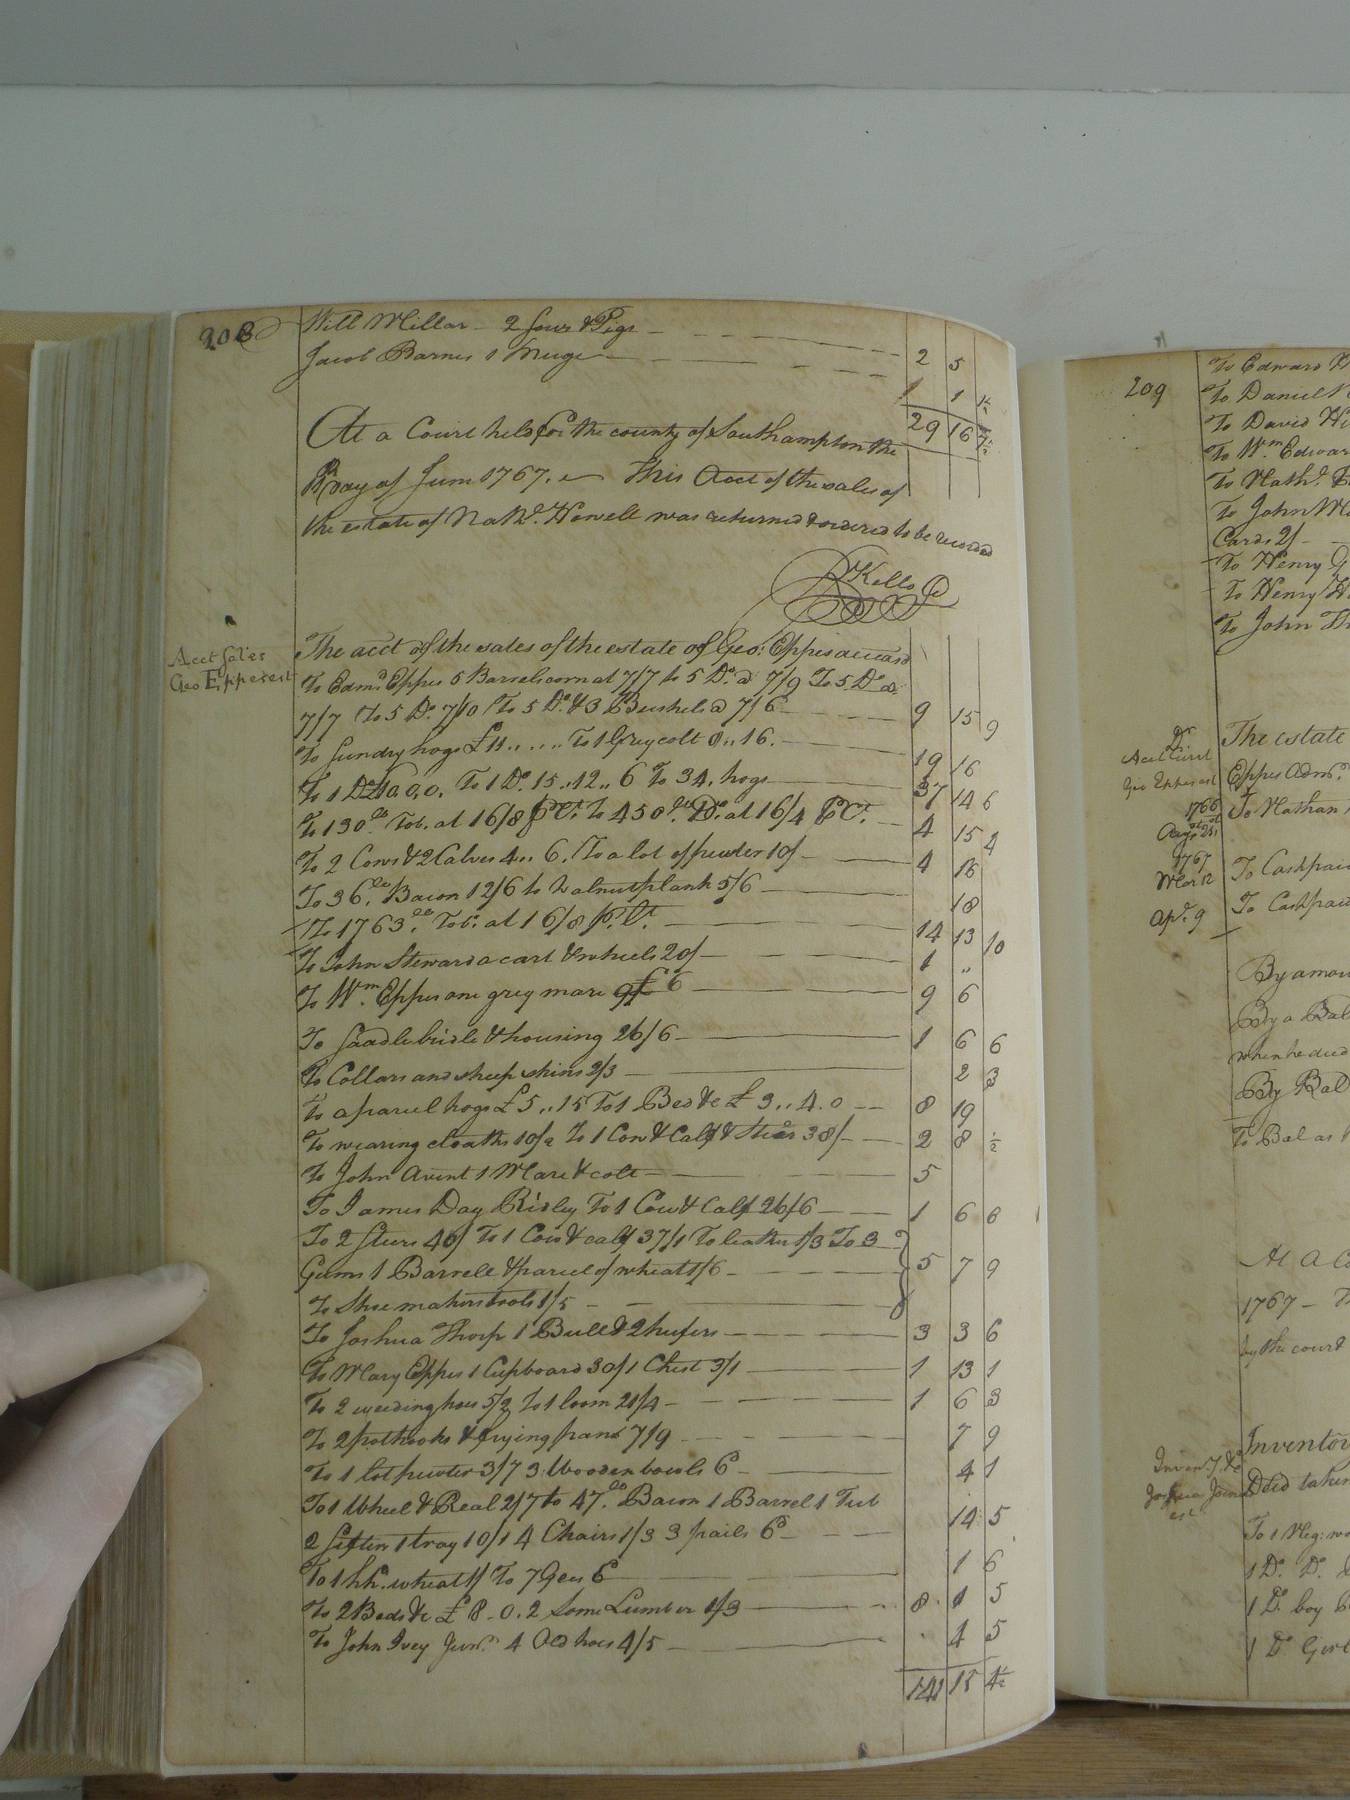 208
Will Millar - 2 Sows & Pigs 2 5
Jacob Barnes 1 Muge 1 1/2
29 16 7 1/2
At a Court held for the county of Southampton the
day of June 1767. This Acct of the sales of
the estate of Nathl. Howell was returned & ordered to be recorded
RKello
Acct Sales
Geo Eppes est
The acct of the sales of the estate of Geo: Eppes deceasd
To Edmd. Eppes 5 Barrels corn at 7/7 to 5 Do. @ 7/9 To 5 Do @
7/7 To 5 Do. 7/10 To 5 Do. & 3 Bushels @ 7/6 9 15 9
To Sundry hogs £11 To 1 Grey colt 8,, 16. 19 16
To 1 Do £16,0,0. To 1 Do. 15,,12,,6 To 34, hogs 37 14 6
To 130 lb. Tob. at 16/8 PCt. To 450 lb. Do. at 16/4 PCt. 4 15 4
To 2 Cows & 2 Calves 4,,6. To a lot of pewter 10/ 4 16
To 36 lb. Bacon 12/6 to Walnut plank 5/6 18
To 1763 lb. Tob. at 16/8 P.Ct. 14 13 10
To John Steward a cart & wheels 20/ 1 ,,
To Wm. Eppes one grey mare 9£ 6 9 6
To Saadle bridle & housing 26/6 1 6 6
To Collars and sheep skins 2/3 2 3
To a parcel hogs £5,,15 To 1 Bed &c £3,,4.0 8 19
To wearing cloaths 10/2 To 1 Cow & Calf & Stear 38/ 2 8 1/2
To John Avent 1 Mare & colt 5
To James Day Ridley To 1 Cow & Calf 26/6 1 6 6
To 2 Steers 40/ To 1 Cow & calf 37/1 To leather 1/3 To 3
Guns 1 Barrell & parcel of wheat 1/6 5 7 9
To Shoe makers tools 1/5
To Joshua Thorp 1 Bull & 2 heifers 3 3 6
To Mary Eppes 1 Cupboard 30/1 Chest 3/1 1 13 1
To 2 weeding hoes 5/2 To 1 loom 21/4 1 6 3
To 2 pothooks & frying pans 7/9 7 9
To 1 lot pewter 3/7 3 Wooden bowls 6d 4 1
To 1 Wheel & Real 2/7 to 47 lb Bacon 1 Barrel 1 Tub
2 Sifters 1 tray 10/1 4 Chairs 1/3 3 pails 6d 14 5
To 1 hhd. wheat 1/ To 7 Gees 6d 1 6
To 2 Beds &c £8-0.2 Some Lumber 1/3 8 1 5
To John Ivey Junr. 4 Old hoes 4/5 4 5
141 15 4 1/2
209
To Edward
To Daniel
To David
To Wm. Edwar
To Nathl.
To John
Cards 2/
To Henry
To Henry
To John
Dr
Acct Curt
Geo Eppes est
The estate
Eppes Admr.
1766
To Nathan
1767
Mar 12
To Cash paid
Apr. 9
To Cash paid
By amou
By a Bal
when he died
By Bal
To Bal as
At a Co
1767 -
by the court
Invent
est
Inventor
Decd taken
To 1 Neg: wo
1 Do. Do.
1 Do boy
1 Do Girl